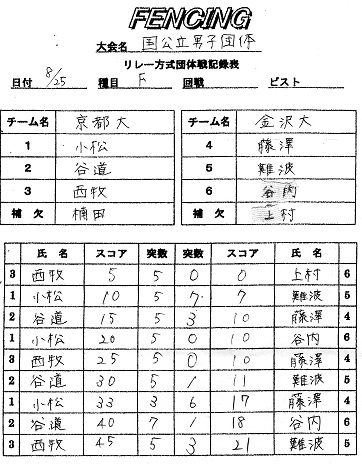 FENCING
大会名 国公立男子団体
リレー方式団体戦記録表
日付 8/25 種目 F 回戦 ピスト
チーム名 京都大 チーム名 金沢大
1 小松 4 藤澤
2 谷道 5 難波
3 西牧 6 谷内
補欠 楠田 補欠 上村
氏名 スコア 突数 突数 スコア 氏名
3 西牧 5 5 0 0 上村 6
1 小松 10 5 7 7 難波 5
2 谷道 15 5 3 10 藤澤 4
1 小松 20 5 0 10 谷内 6
3 西牧 25 5 0 10 藤澤 4
2 谷道 30 5 1 11 難波 5
1 小松 33 3 6 17 藤澤 4
2 谷道 40 7 1 18 谷内 6
3 西牧 45 5 3 21 難波 5